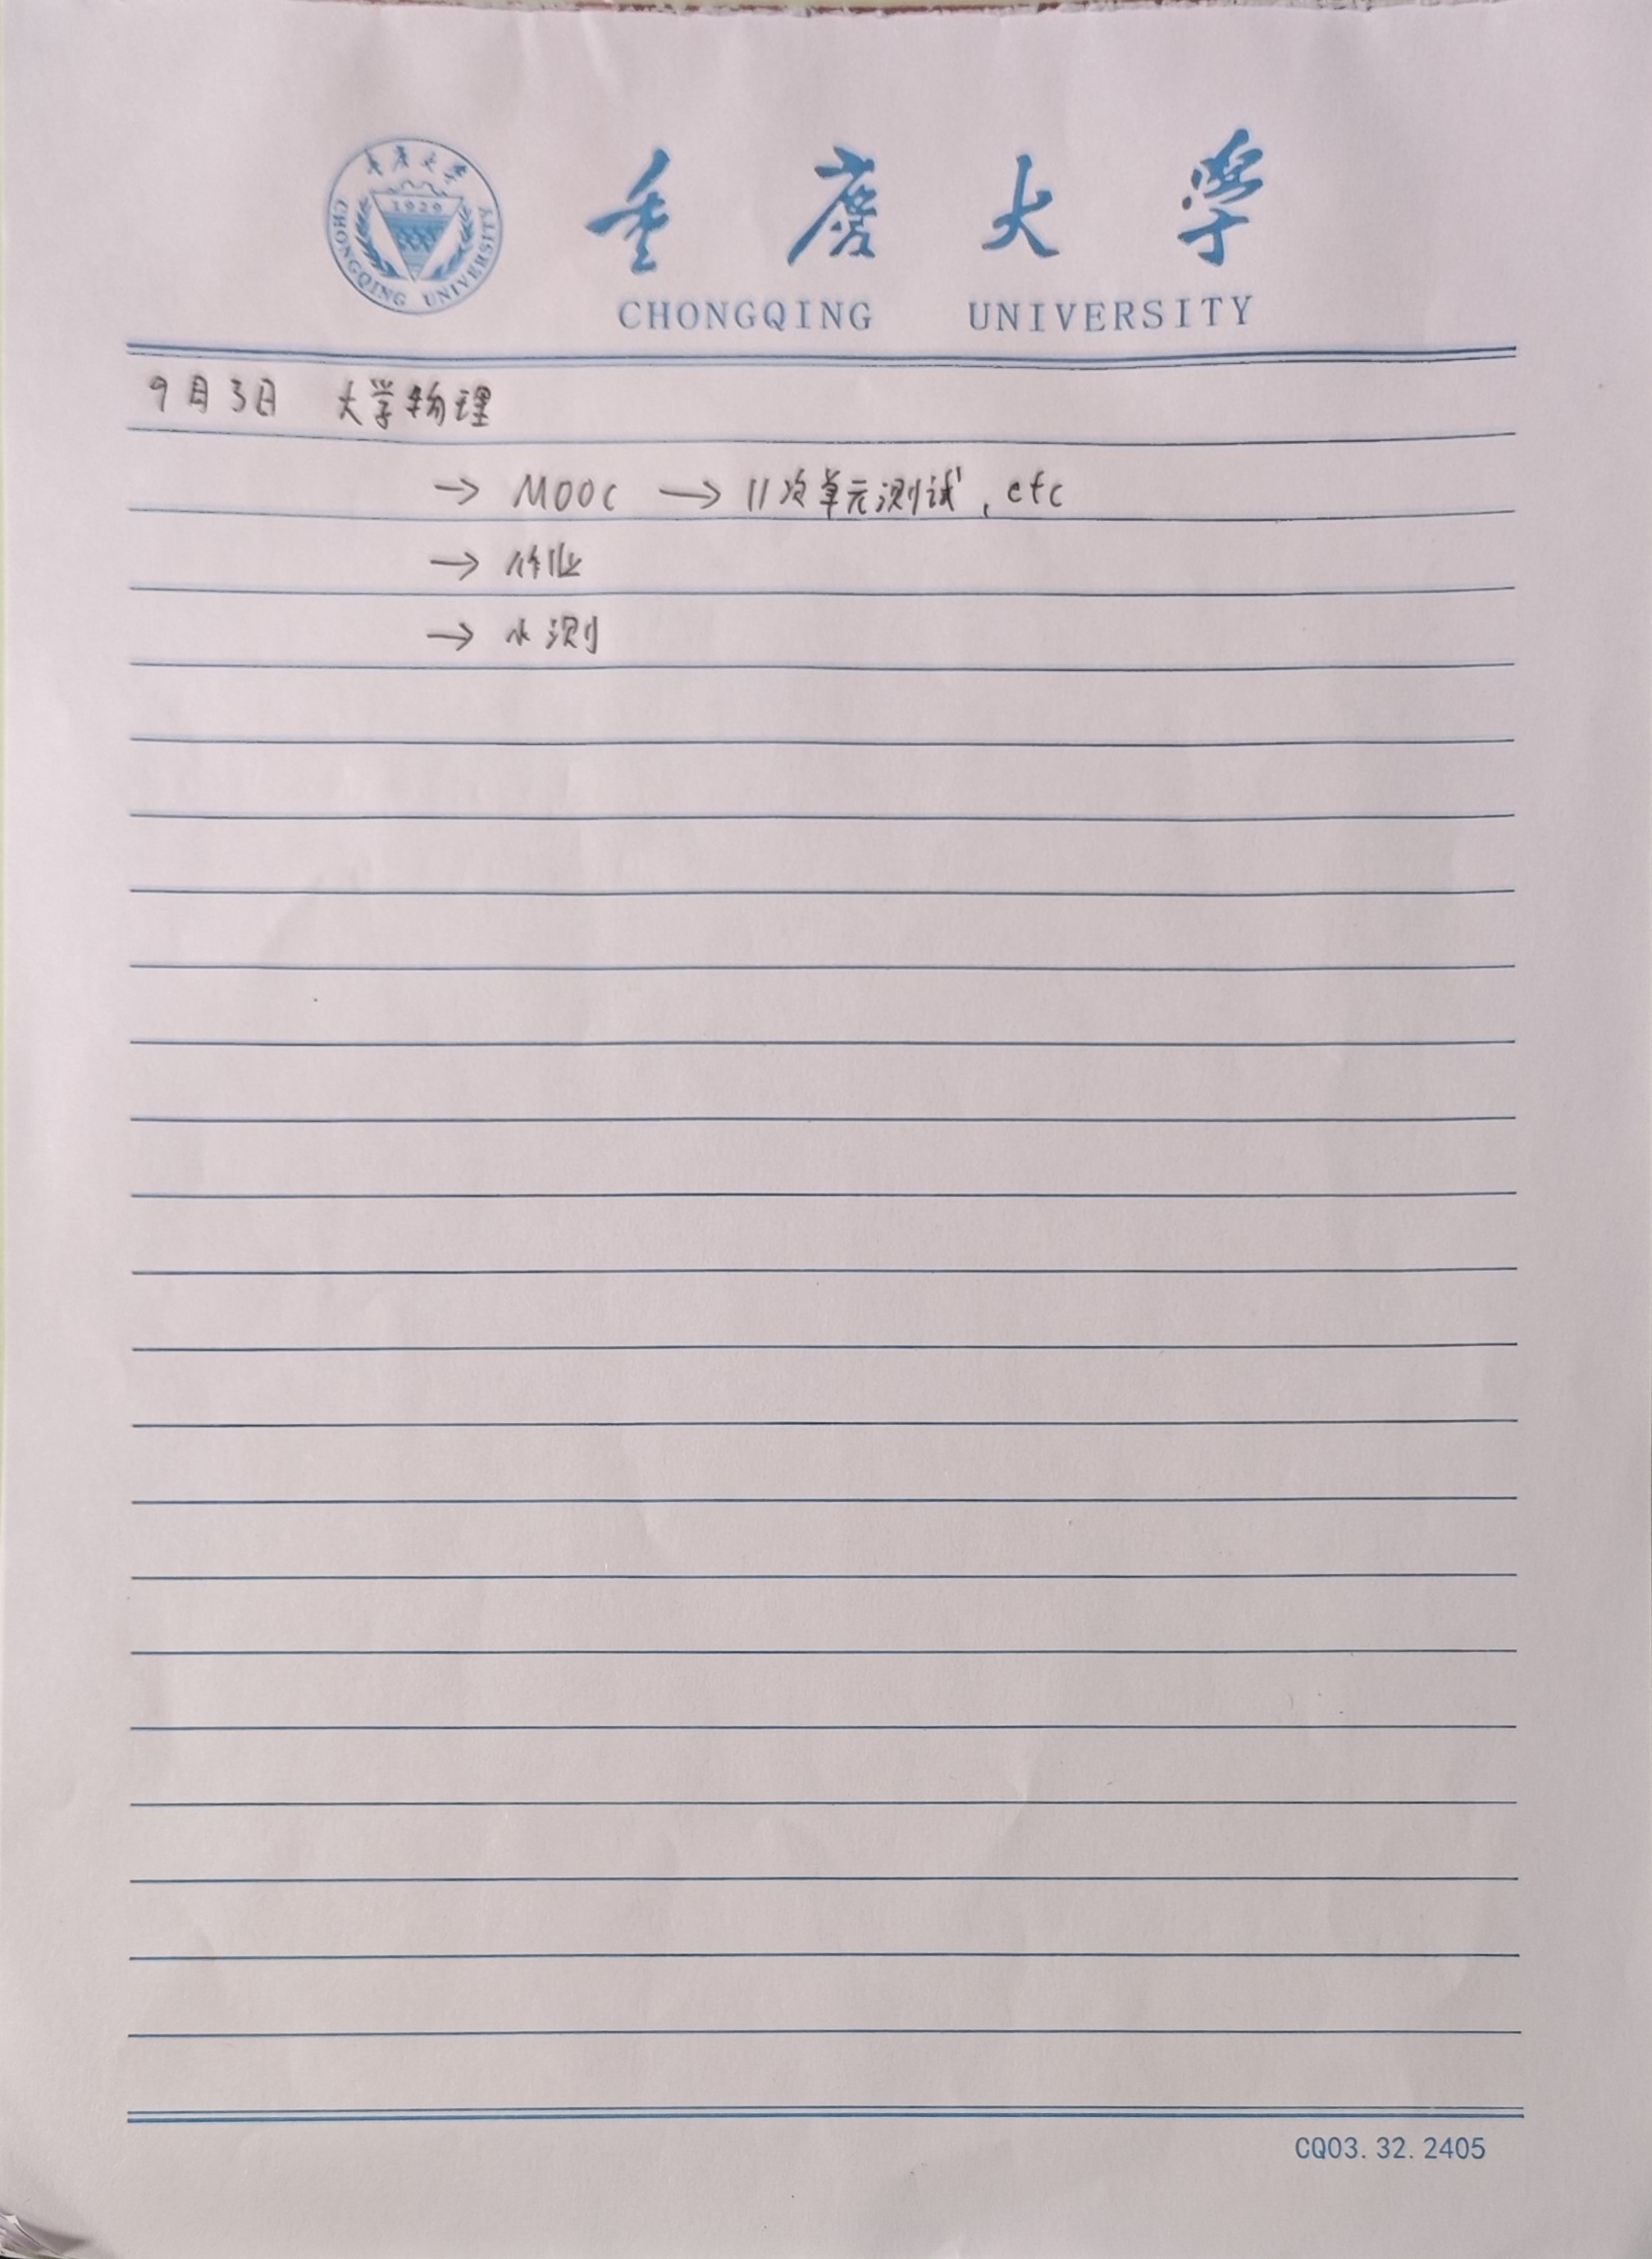 重庆大学
CHONGQING UNIVERSITY
1929
重庆大学
CHONGQING UNIVERSITY
9月3日 大学物理
→ MOOC → 11次单元测试, etc
→ 作业
→ 小测
CQ03.32.2405